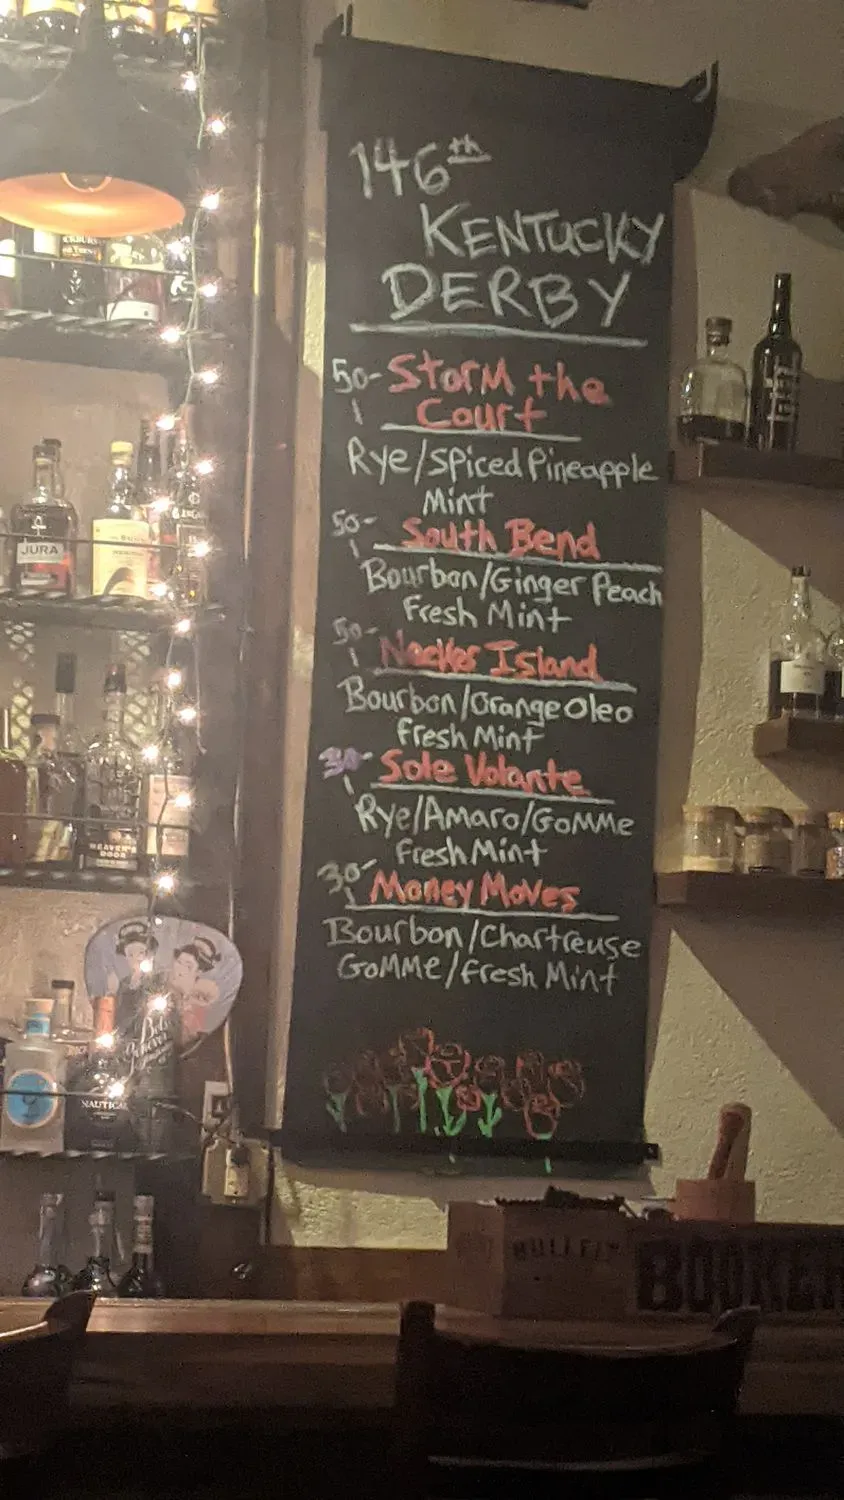 146th
KENTUCKY
DERBY
50-1 Storm the
Court
Rye/Spiced Pineapple
Mint
50-1 South Bend
Bourbon/Ginger Peach
Fresh Mint
50-1 Necker Island
Bourbon/Orange Oleo
Fresh Mint
30-1 Sole Volante
Rye/Amaro/GoMMe
Fresh Mint
30-1 Money Moves
Bourbon/Chartreuse
GoMMe/Fresh Mint
JURA
HEAVEN'S
DOOR
Bols
Genever
NAUTICAL
BULLEIT
BOOKER